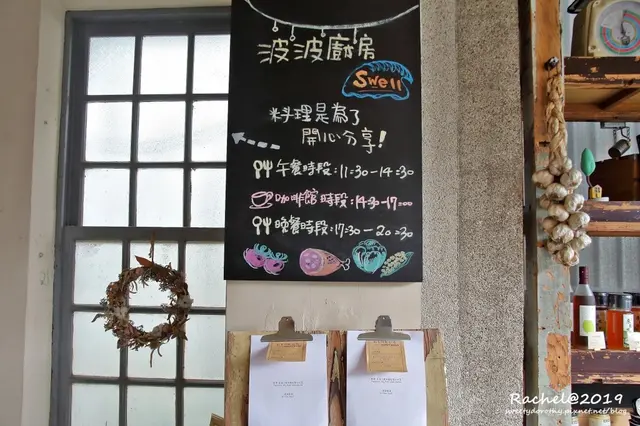 波波廚房
Swell
料理是為了
開心分享!
午餐時段:11:30-14:30
咖啡館時段:14:30-17:00
晚餐時段:17:30-20:30
Rachel@2019
sweetydorothy.pixnet.net/blog